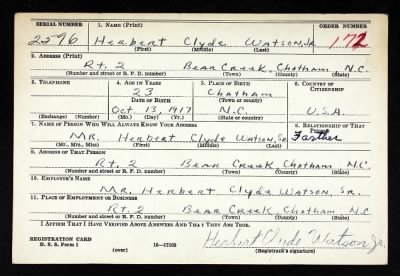 SERIAL NUMBER 1. NAME (Print) ORDER NUMBER
2596 Herbert Clyde Watson, Jr. 172
(First) (Middle) (Last)
2. ADDRESS (Print)
Rt. 2 Bear Creek, Chatham N.C.
(Number and street or R. F. D. number) (Town) (County) (State)
3. TELEPHONE 4. AGE IN YEARS 5. PLACE OF BIRTH 6. COUNTRY OF CITIZENSHIP
23 Chatham
DATE OF BIRTH (Town or county)
Oct. 13, 1917 N.C. U.S.A.
(Exchange) (Number) (Mo.) (Day) (Yr.) (State or country)
7. NAME OF PERSON WHO WILL ALWAYS KNOW YOUR ADDRESS 8. RELATIONSHIP OF THAT PERSON
Mr. Herbert Clyde Watson, Sr. Farther
(Mr., Mrs., Miss) (First) (Middle) (Last)
9. ADDRESS OF THAT PERSON
Rt. 2 Bear Creek Chatham N.C.
(Number and street or R. F. D. number) (Town) (County) (State)
10. EMPLOYER'S NAME
Mr. Herbert Clyde Watson, Sr.
11. PLACE OF EMPLOYMENT OR BUSINESS
Rt. 2 Bear Creek Chatham N.C.
(Number and street or R. F. D. number) (Town) (County) (State)
I AFFIRM THAT I HAVE VERIFIED ABOVE ANSWERS AND THAT THEY ARE TRUE.
REGISTRATION CARD Herbert Clyde Watson Jr.
D. S. S. Form 1 (over) 16—17105 (Registrant's signature)